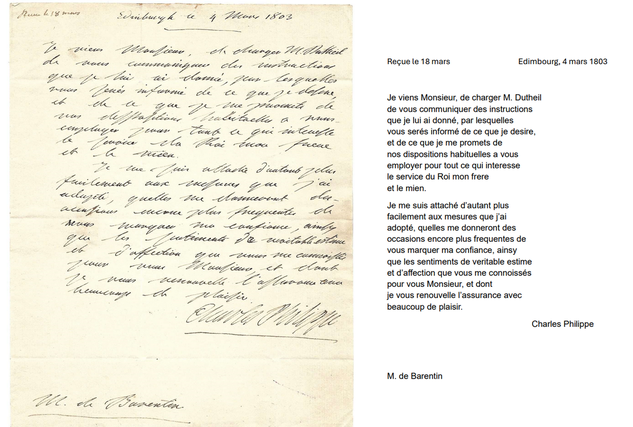 Reçue le 18 mars
Edimbourgh ce 4 Mars 1803
Je viens Monsieur, de charger M. Dutheil
de vous communiquer des instructions
que je lui ai donné, par lesquelles
vous serés informé de ce que je desire,
et de ce que je me promets de
vos dispositions habituelles a vous
employer pour tout ce qui interesse
le service du Roi mon frere
et le mien.
Je me suis attaché d'autant plus
facilement aux mesures que j'ai
adopté, quelles me donneront des
occasions encore plus frequentes de
vous marquer ma confiance, ainsy
que les sentiments de veritable estime
et d'affection que vous me connoissés
pour vous Monsieur, et dont
je vous renouvelle l'assurance avec
beaucoup de plaisir.
Charles Philippe
M. de Barentin
Reçue le 18 mars
Edimbourg, 4 mars 1803
Je viens Monsieur, de charger M. Dutheil
de vous communiquer des instructions
que je lui ai donné, par lesquelles
vous serés informé de ce que je desire,
et de ce que je me promets de
nos dispositions habituelles a vous
employer pour tout ce qui interesse
le service du Roi mon frere
et le mien.
Je me suis attaché d'autant plus
facilement aux mesures que j'ai
adopté, quelles me donneront des
occasions encore plus frequentes de
vous marquer ma confiance, ainsy
que les sentiments de veritable estime
et d'affection que vous me connoissés
pour vous Monsieur, et dont
je vous renouvelle l'assurance avec
beaucoup de plaisir.
Charles Philippe
M. de Barentin